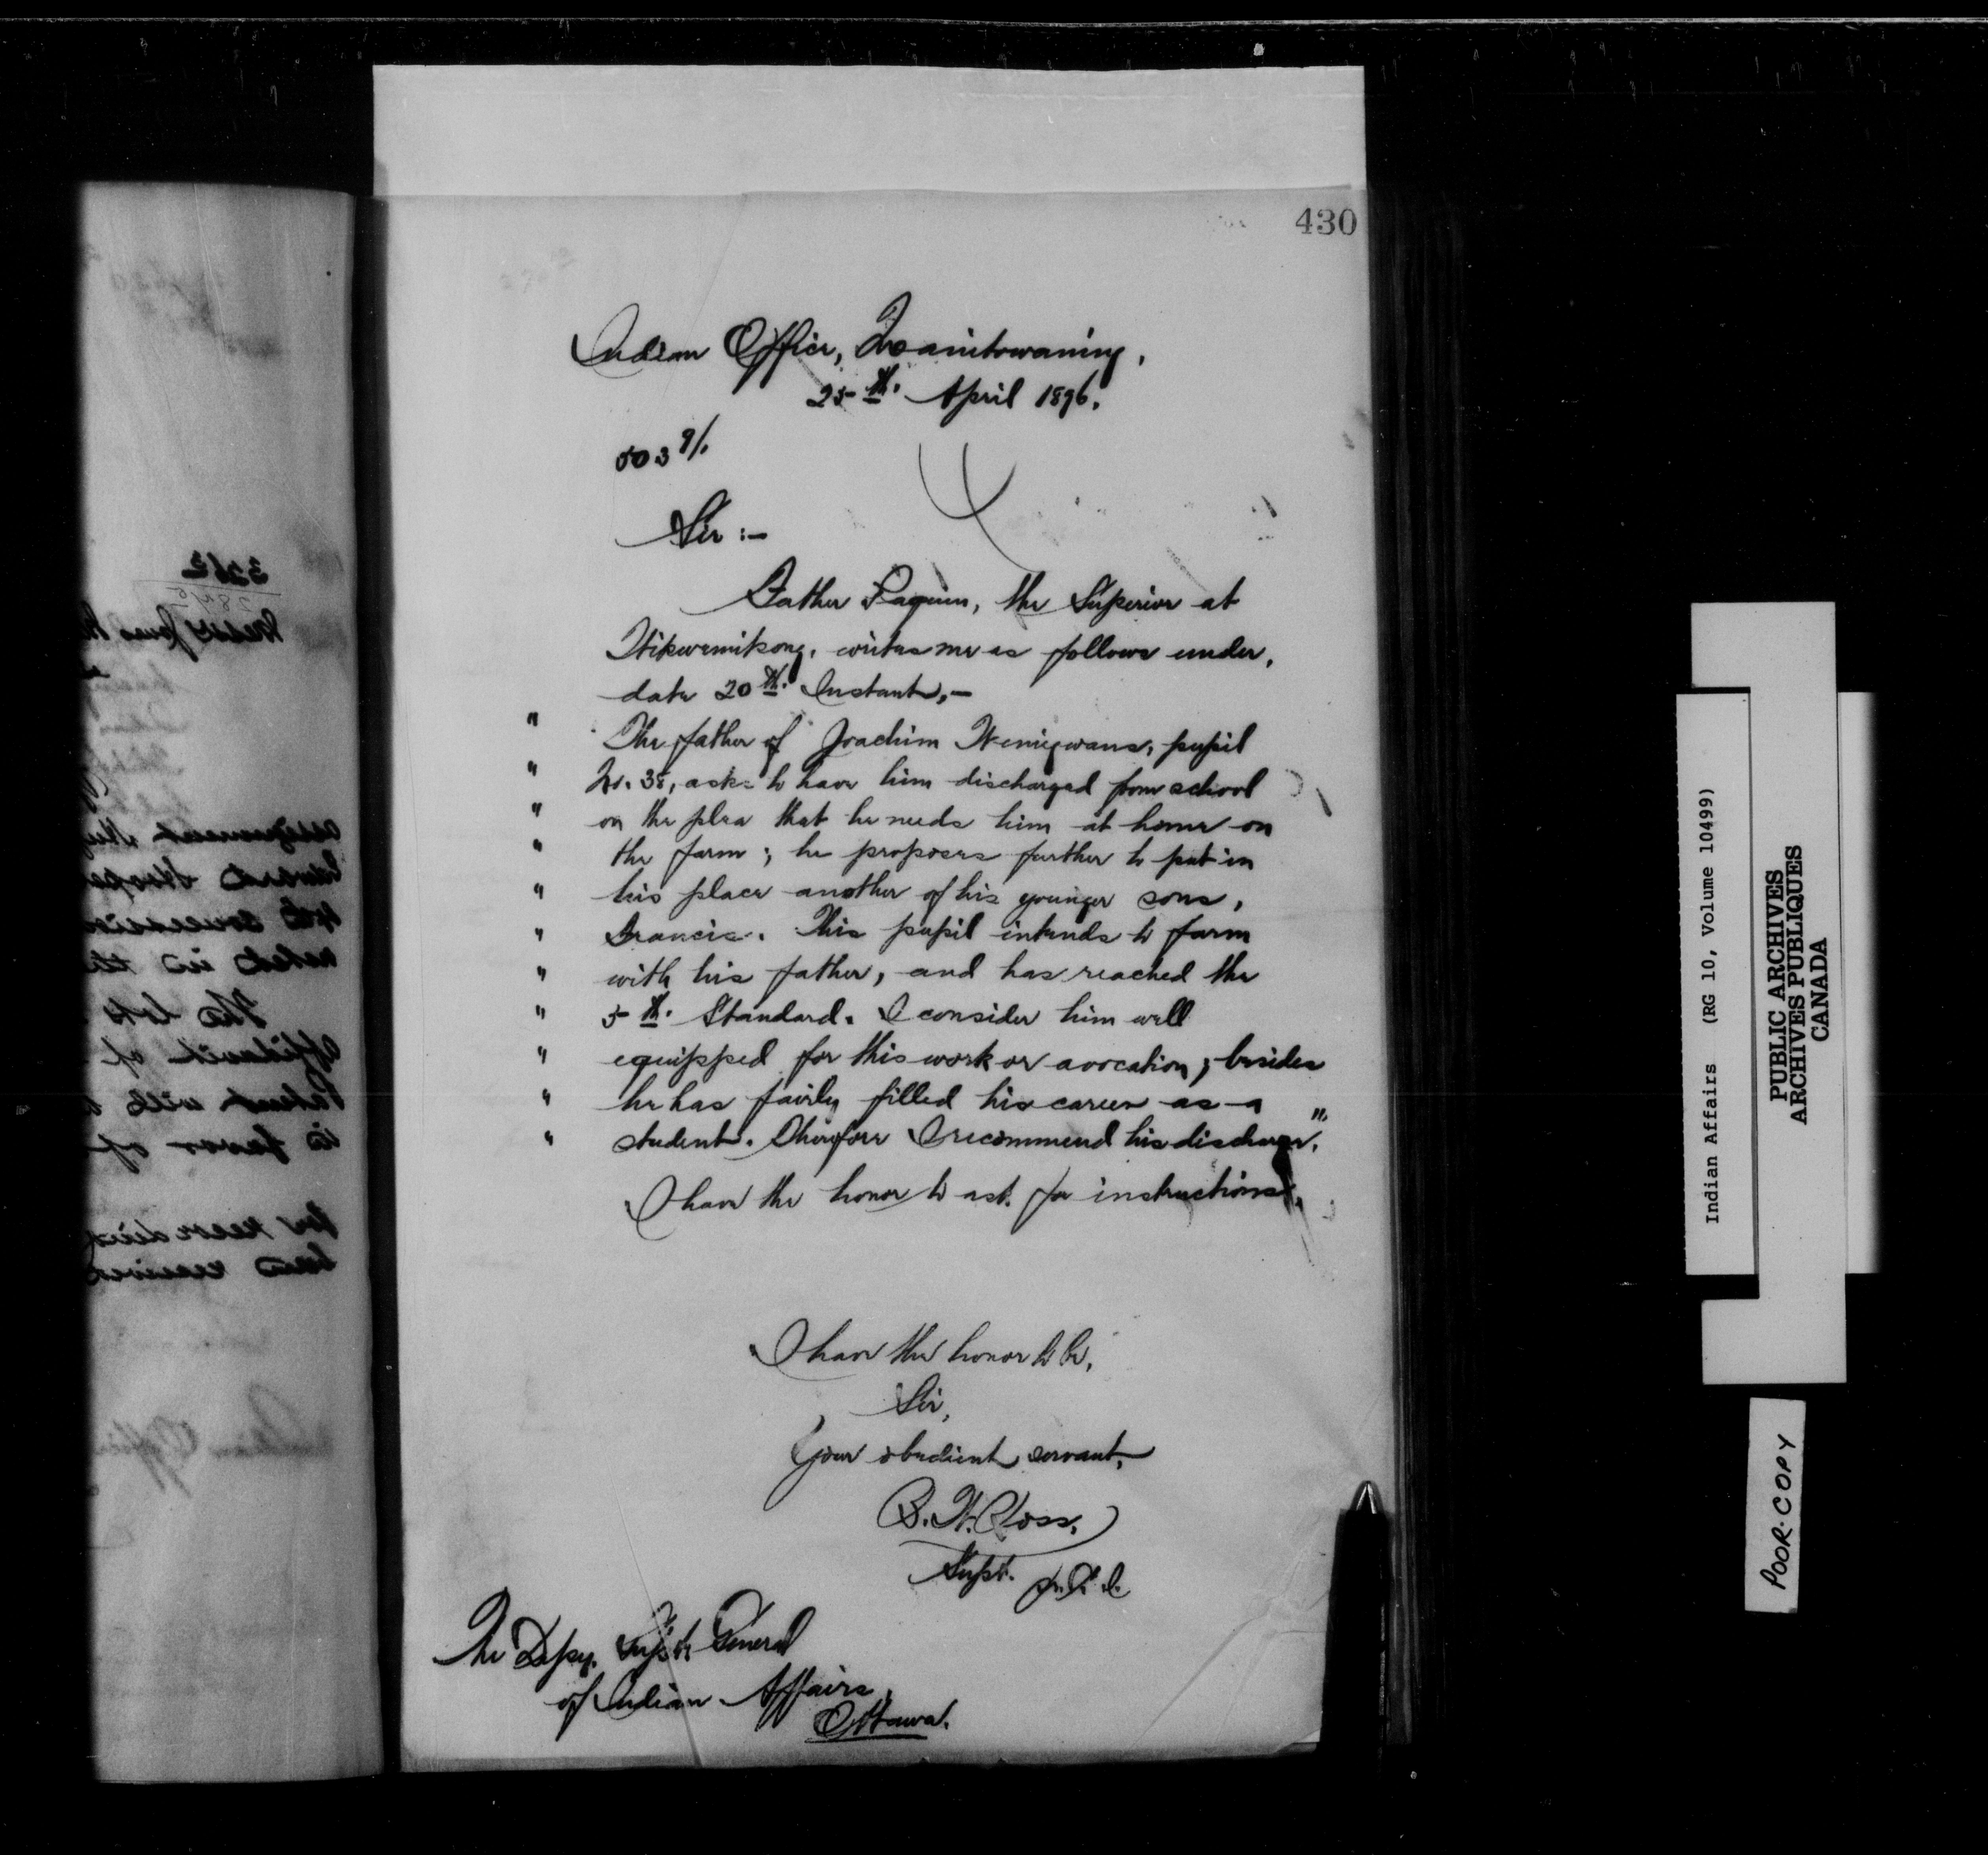 430
Indian Office, Manitowaning,
25th. April 1896.
503 9/.
Sir :-
Father Paquin, the Superior at
Wikwemikong, writes me as follows under,
date 20th. Instant,-
" The father of Joachim Wemigwans, pupil
" No. 38, asks to have him discharged from school
" on the plea that he needs him at home on
" the farm ; he proposes further to put in
" his place another of his younger sons,
" Francis. This pupil intends to farm
" with his father, and has reached the
" 5th. Standard. I consider him well
" equipped for this work or avocation ; besides
" he has fairly filled his career as a
" student. Therefore I recommend his discharge."
I have the honor to ask for instructions.
I have the honor to be,
Sir,
Your obedient servant,
B. W. Ross,
Supt.
The Depy. Supt. General
of Indian Affairs,
Ottawa.
Indian Affairs (RG 10, Volume 10499)
PUBLIC ARCHIVES
ARCHIVES PUBLIQUES
CANADA
POOR COPY